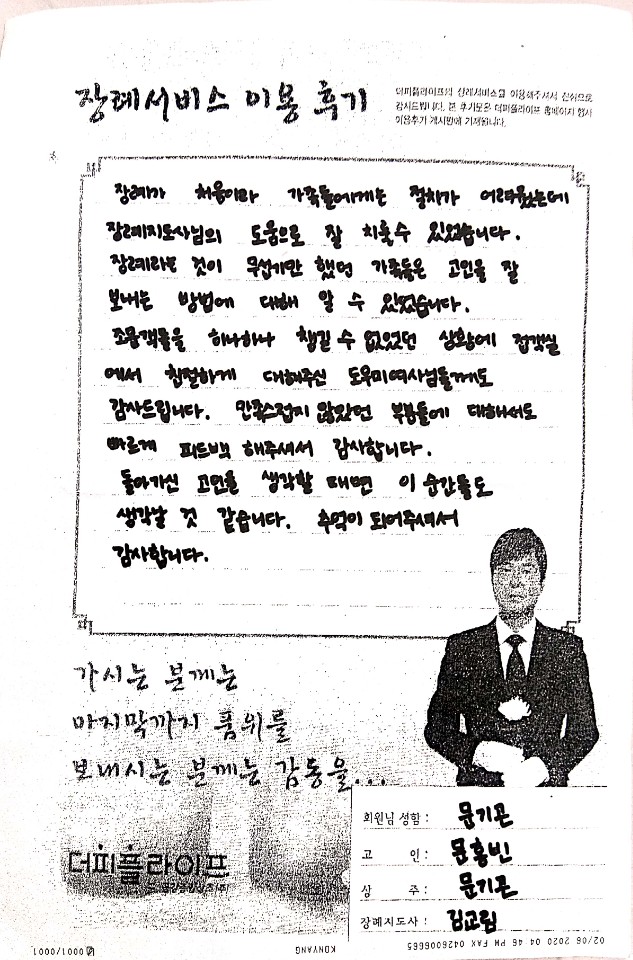 장례서비스 이용 후기
더피플라이프의 상례서비스를 이용해주셔서 진심으로
감사드립니다. 본 후기문은 더피플라이프 홈페이지 행사
이용후기 게시판에 기재됩니다.
장례가 처음이라 가족들에게는 절차가 어려웠는데
장례지도사님의 도움으로 잘 치룰수 있었습니다.
장례라는 것이 무섭기만 했던 가족들은 고인을 잘
보내는 방법에 대해 알 수 있었습니다.
조문객들을 하나하나 챙길 수 없었던 상황에 접객실
에서 친절하게 대해주신 도우미여사님들께도
감사드립니다. 만족스럽지 않았던 부분들에 대해서도
빠르게 피드백 해주셔서 감사합니다.
돌아가신 고인을 생각할 때면 이 순간들도
생각날 것 같습니다. 추억이 되어주셔서
감사합니다.
가시는 분께는
마지막까지 품위를
보내시는 분께는 감동을...
더피플라이프
회원님 성함 : 문기곤
고 인 : 문홍빈
상 주 : 문기곤
장례지도사 : 김교림
02/06 2020 04:46 PM FAX 0426006665
KONYANG
0001/0001